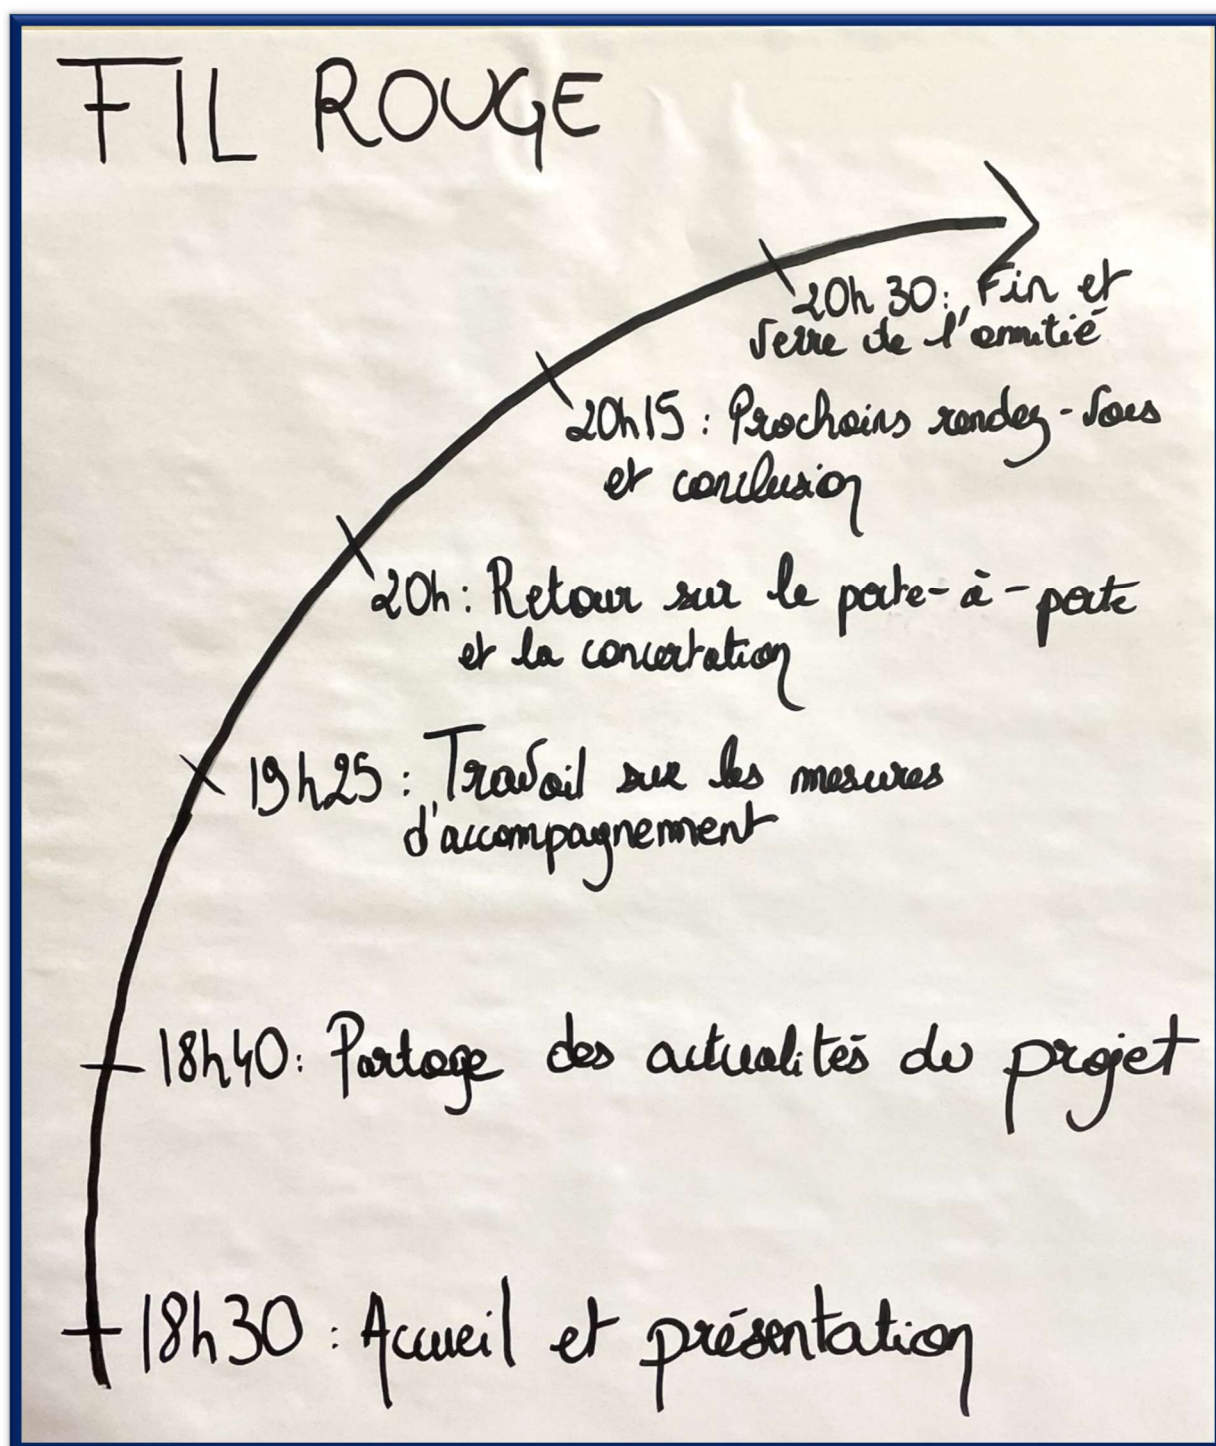 FIL ROUGE
20h30: Fin et
verre de l'amitié
20h15 : Prochains rendez-vous
et conclusion
20h : Retour sur le porte-à-porte
et la concertation
19h25 : Travail sur les mesures
d'accompagnement
18h40: Partage des actualités du projet
18h30 : Accueil et présentation